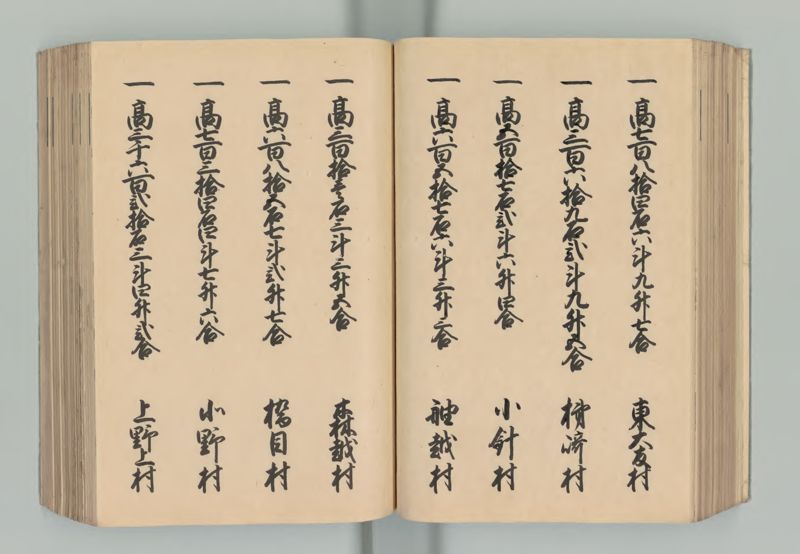 一 高七百八拾四石六斗九升七合 東大友村
一 高三百六拾九石弐斗九升五合 柿﨑村
一 高五百拾七石弐斗六升四合 小針村
一 高六百五拾七石六斗三升三合 舳越村
一 高三百拾壱石三斗三升五合 森越村
一 高六百八拾五石七斗弐升七合 橋目村
一 高七百三拾四石四斗七升六合 北野村
一 高二千六百弐拾石三斗四升弐合 上野上村